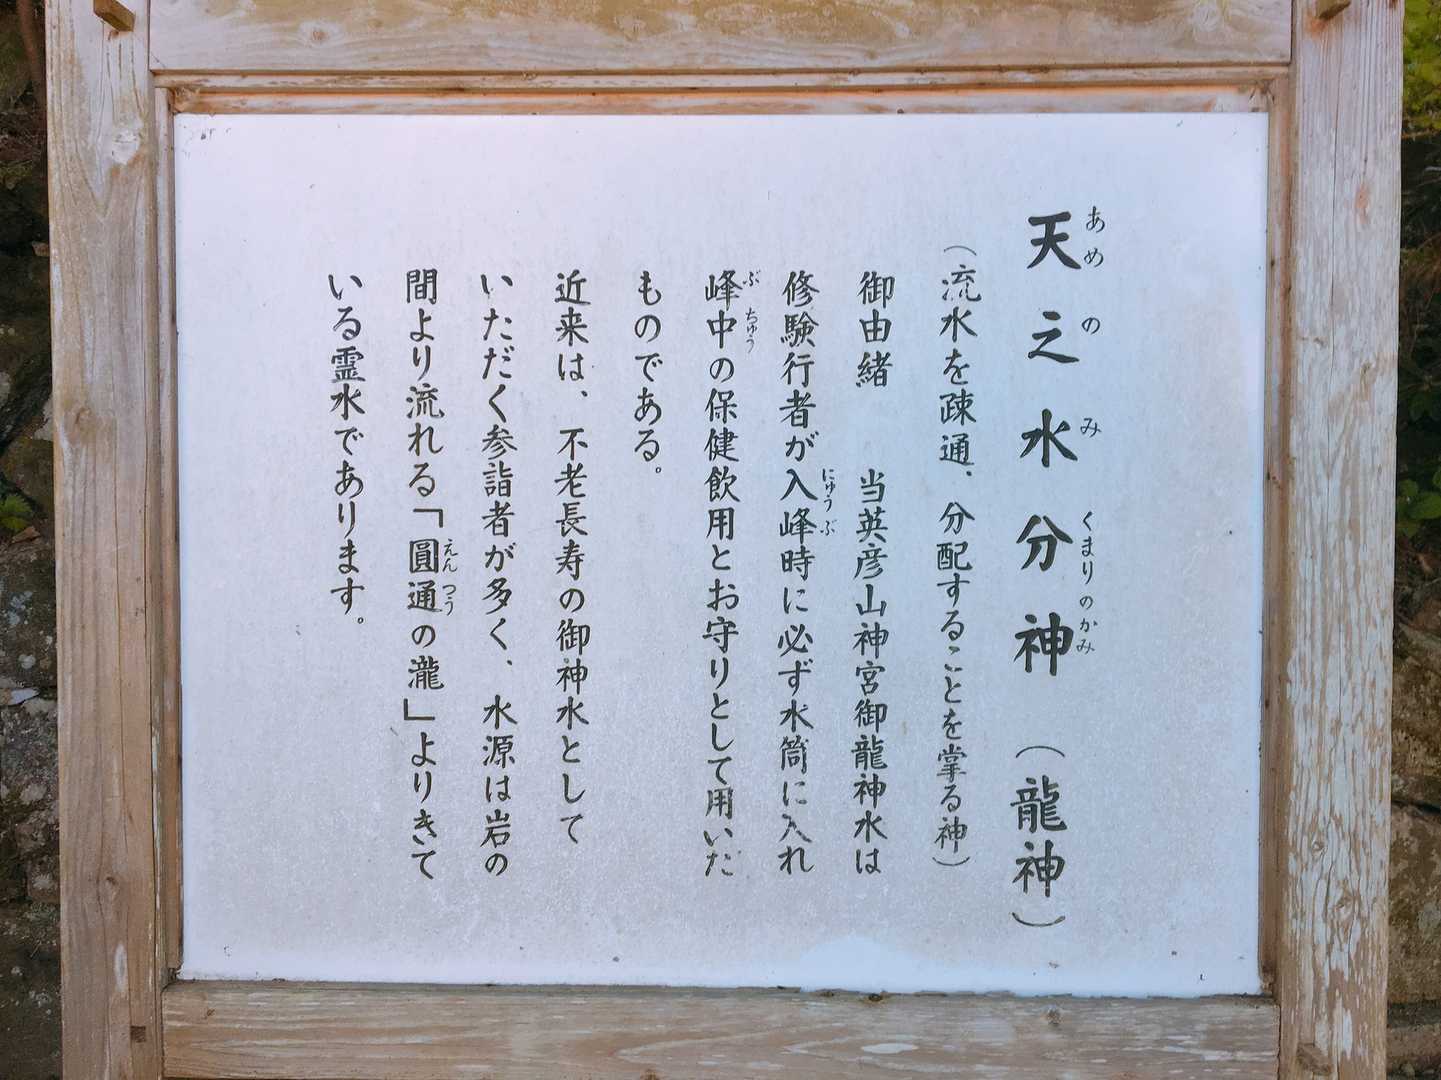 天之水分神（龍神）
あめのみくまりのかみ
（流水を疎通、分配することを掌る神）
御由緒　当英彦山神宮御龍神水は
修験行者が入峰時に必ず水筒に入れ
にゅうぶ
峰中の保健飲用とお守りとして用いだ
ぶちゅう
ものである。
近来は、不老長寿の御神水として
いただく参詣者が多く、水源は岩の
間より流れる「圓通の瀧」よりきて
えんつう
いる霊水であります。